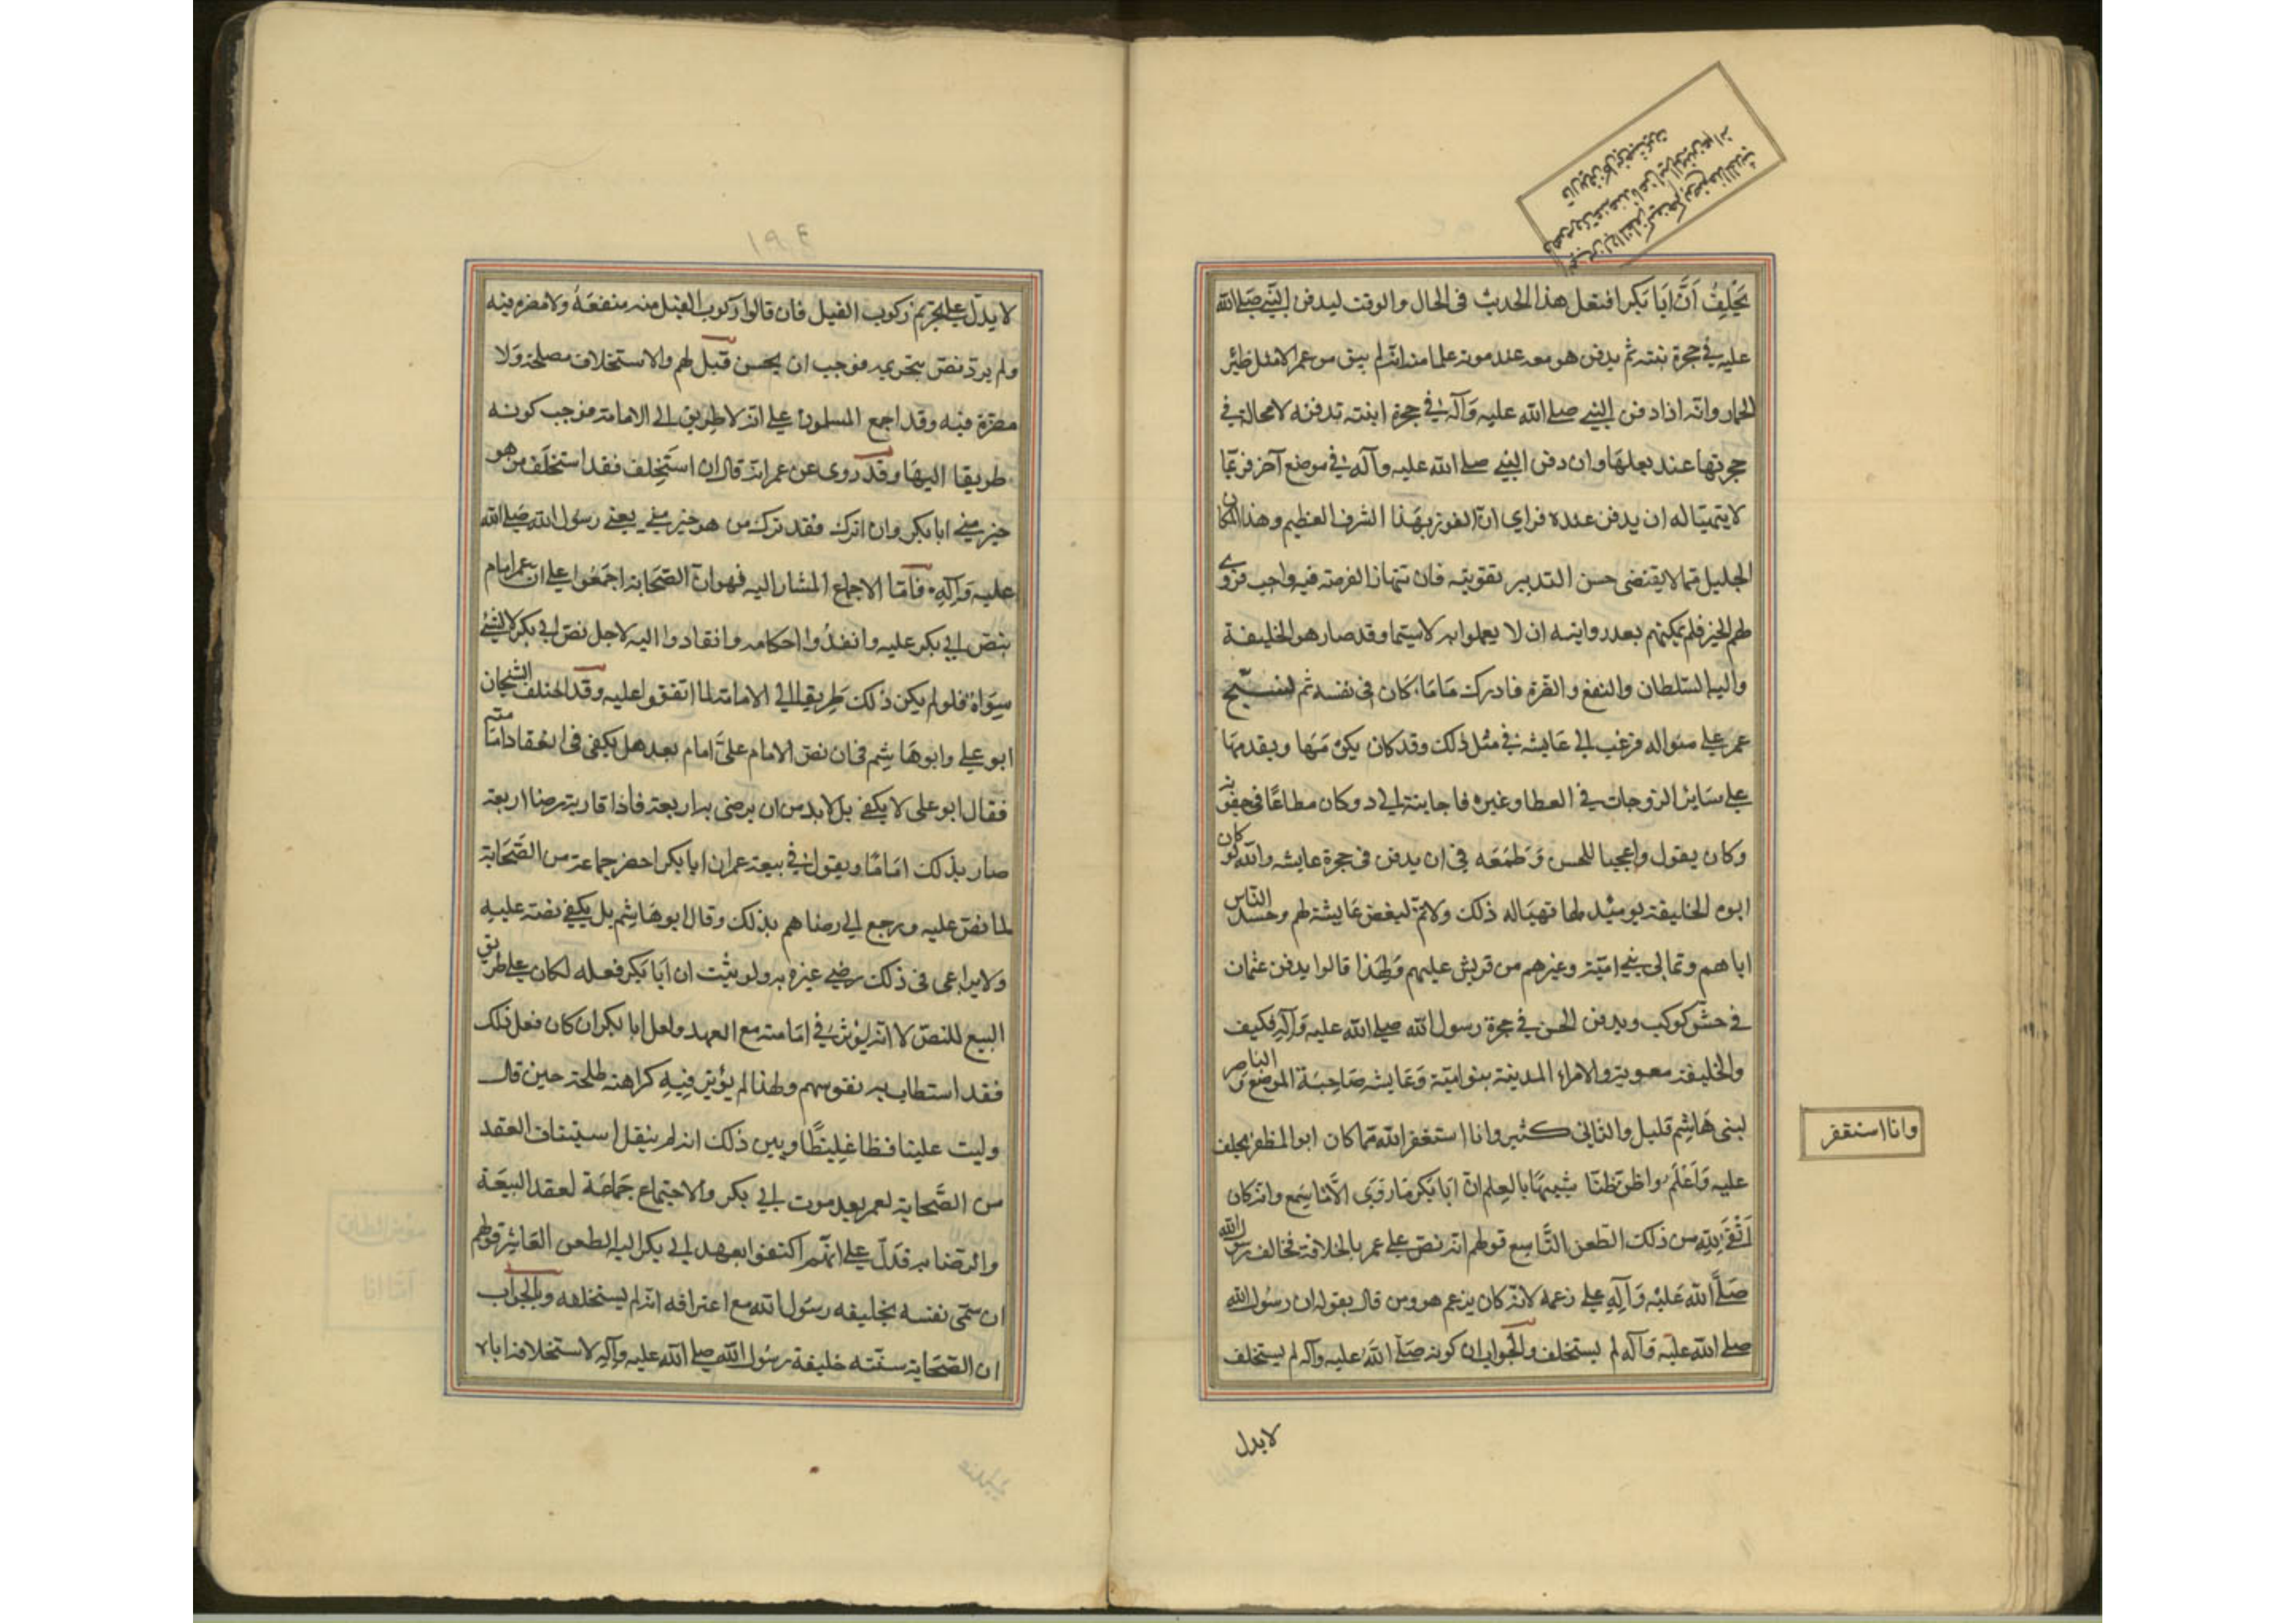 يحلف أنّ ابا بكر افتعل هذا الحديث فى الحال والوقت ليدفن النبي صلى الله
عليه في حجرة بنته ثم يدفن هو معه عند موته علما منه انه لم يبق من عمره الامثل ظمئ
الحمار وانه اذا دفن النبي صلى الله عليه وآله في حجرة ابنته تدفنه لا محالة في
حجرتها عند بعلها وان دفن النبي صلى الله عليه وآله في موضع آخر فربما
لا يتهيّأ له ان يدفن عنده فراى انّ الفوز بهذا الشرف العظيم وهذا المكان
الجليل مما لا يقتضى حسن التدبير تفويته فان انتهاز الفرصة فيه واجب فروى
لهم الخبر فلم يمكنهم بعد روايته ان لا يعملوا به لا سيما وقد صار هو الخليفة
واليه السلطان والنفع والضرّ فادرك ما كان فى نفسه ثم نسج
عمر على منواله فرغب الى عايشة في مثل ذلك وقد كان يكرمها ويقدمها
على ساير الزوجات في العطا وغيره فاجابته الى ذلك وكان مطاعًا في حيوته
وكان يقول واعجبا للحسن وطمعه في ان يدفن فى حجرة عايشه والله لو كان
ابوه الخليفة يومئذ لما تهيّا له ذلك ولا تمّ لبغض عايشة لهم وحسد الناس
اياهم وتمالى بني اميّة وغيرهم من قريش عليهم ولهذا قالوا يدفن عثمان
في حش كوكب ويدفن الحسن في حجرة رسول الله صلى الله عليه وآله فكيف
والخليفة معوية والامراء المدينة بنو اميّة وعايشه صاحبة الموضع والناصر
لبنى هاشم قليل والشانى كثير وانا استغفر الله مما كان ابو المظفر يحلف
عليه واعلم واظن ظنّا شبيها بالعلم انّ ابا بكر ما روى الّا ما سمع وانه كان
اتقى لله من ذلك الطعن التاسع قولهم انه نص على عمر بالخلافة فخالف رسول الله
صلّى الله عليه وآله على زعمه لانه كان يزعم هو ومن قال بقوله ان رسول الله
صلى الله عليه وآله لم يستخلف والجواب ان كونه صلّى الله عليه وآله لم يستخلف
لا يدل
وانا استغفر
١٩٤
لا يدلّ على تحريم ركوب الفيل فان قالوا ركوب الفيل منه منفعة ولا مضرة فيه
ولم يرد نص بتحريمه فوجب ان يحسن قيل لهم والاستخلاف مصلحة ولا
مضرّة فيه وقد اجمع المسلمون على انه لا طريق الى الامامة فوجب كونه
طريقا اليها وقد روى عن عمر انه قال ان استخلف فقد استخلف من هو
خير مني ابا بكر وان اترك فقد ترك من هو خير مني يعني رسول الله صلى الله
عليه وآله فامّا الاجماع المشار اليه فهو انّ الصّحابة اجمعوا على ان عمر امام
بنص ابي بكر عليه وانفذوا احكامه وانقادوا اليه لاجل نص ابى بكر لا لشئ
سواه فلو لم يكن ذلك طريقا الى الامامة لما اتفقوا عليه وقد اختلف الشيخان
ابو علي وابو هاشم في ان نص الامام على امام بعد هل يكفى فى انعقاد امامته
فقال ابو على لا يكفي بل لا بد من ان يرضى به اربعة فاذا قاربته رضا اربعة
صار بذلك امامًا ويقول في بيعة عمر ان ابا بكر احضر جماعة من الصحابة
لما نص عليه ورجع الى رضاهم بذلك وقال ابو هاشم بل يكفي نصّه عليه
ولا يراعى فى ذلك رضى غيره به ولو ثبت ان ابا بكر فعله لكان على طريق
البيع للنص لا انه يؤثر في امامته مع العهد ولعل ابا بكر ان كان فعل ذلك
فقد استطاب به نفوسهم ولهذا لم يؤثر فيه كراهة طلحة حين قال
وليت علينا فظا غليظا ويبين ذلك انه لم ينقل استيناف العقد
من الصّحابة لعمر بعد موت ابي بكر ولا اجتماع جماعة لعقد البيعة
والرضا به فدلّ على انّهم اكتفوا بعهد ابي بكر اليه الطعن العاشر قولهم
ان سمّى نفسه بخليفه رسول الله مع اعترافه انه لم يستخلفه والجواب
ان الصّحابة سمّته خليفة رسول الله صلى الله عليه وآله لاستخلافه اياه